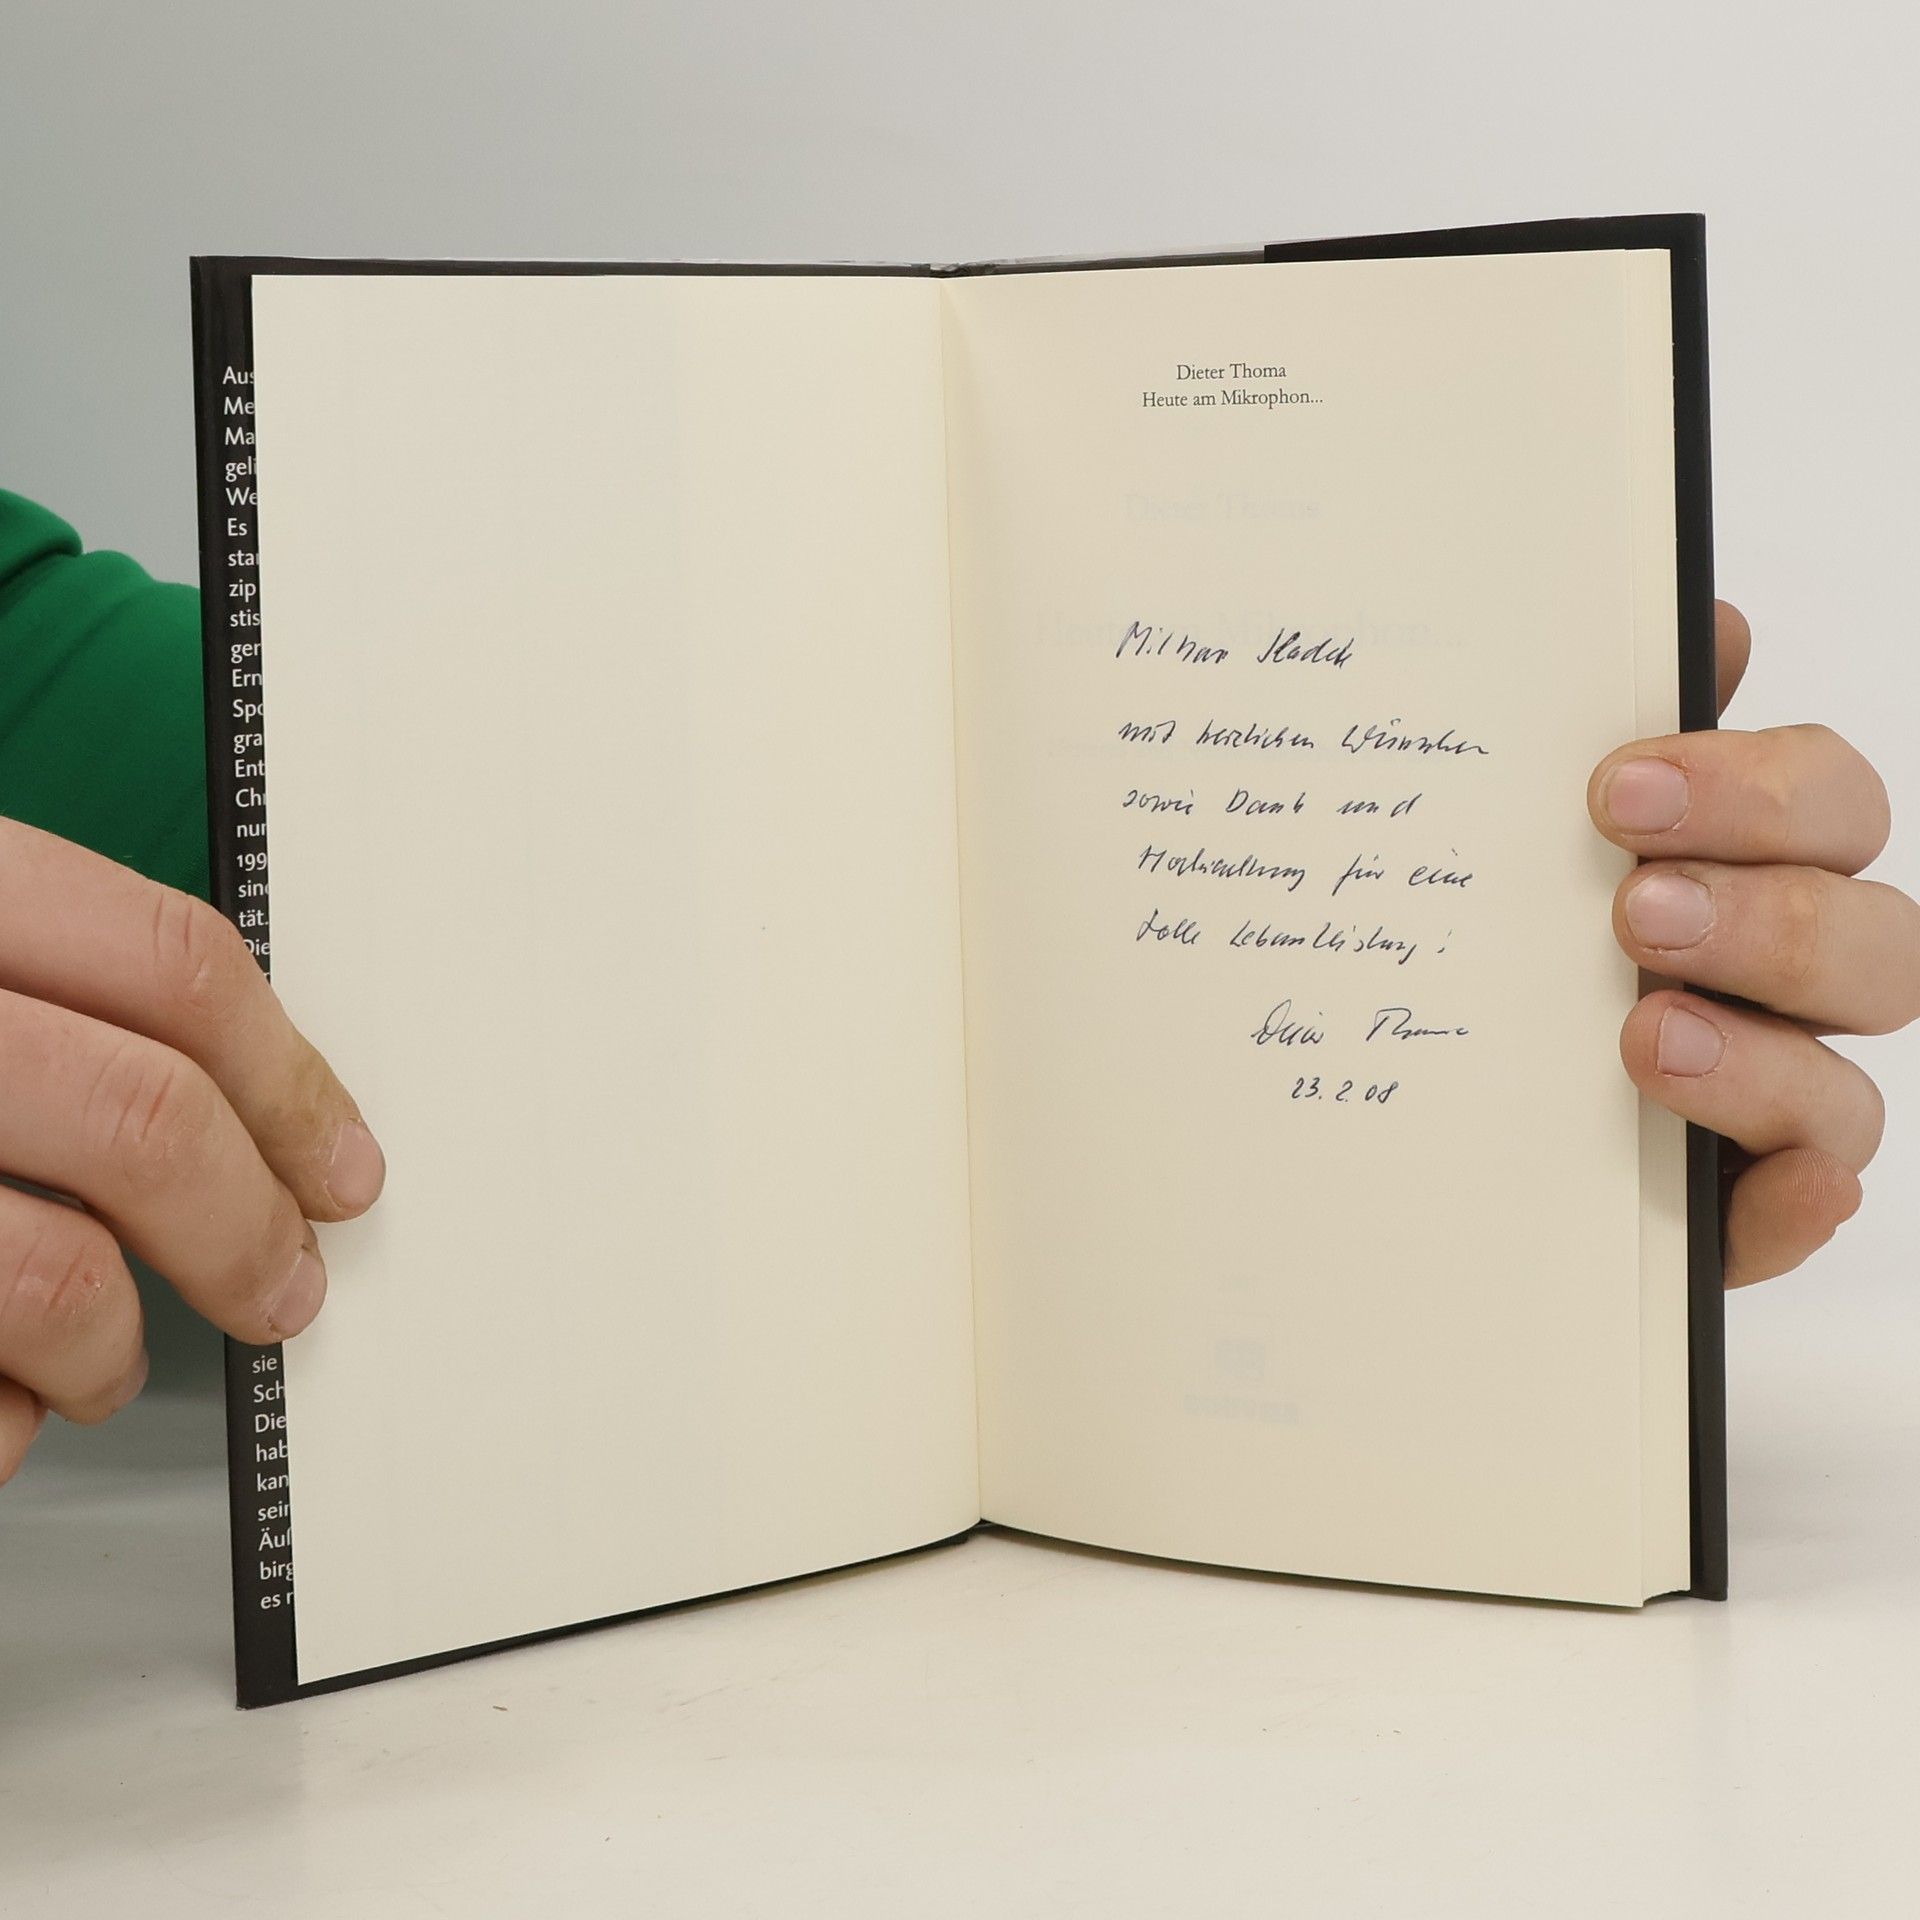 Aus
Me
Ma
geli
We
Es
star
zip
stis
ger
Ern
Spo
gra
Ent
Chr
nur
199
sind
tät.
Die
sie
Sch
Die
hab
kan
sein
Äuß
birg
es n
Dieter Thoma
Heute am Mikrophon...
Milan
mit herzlichen Wünschen
sowie Dank und
Hochachtung für eine
tolle Lebensleistung!
Dieter Thoma
23.2.08